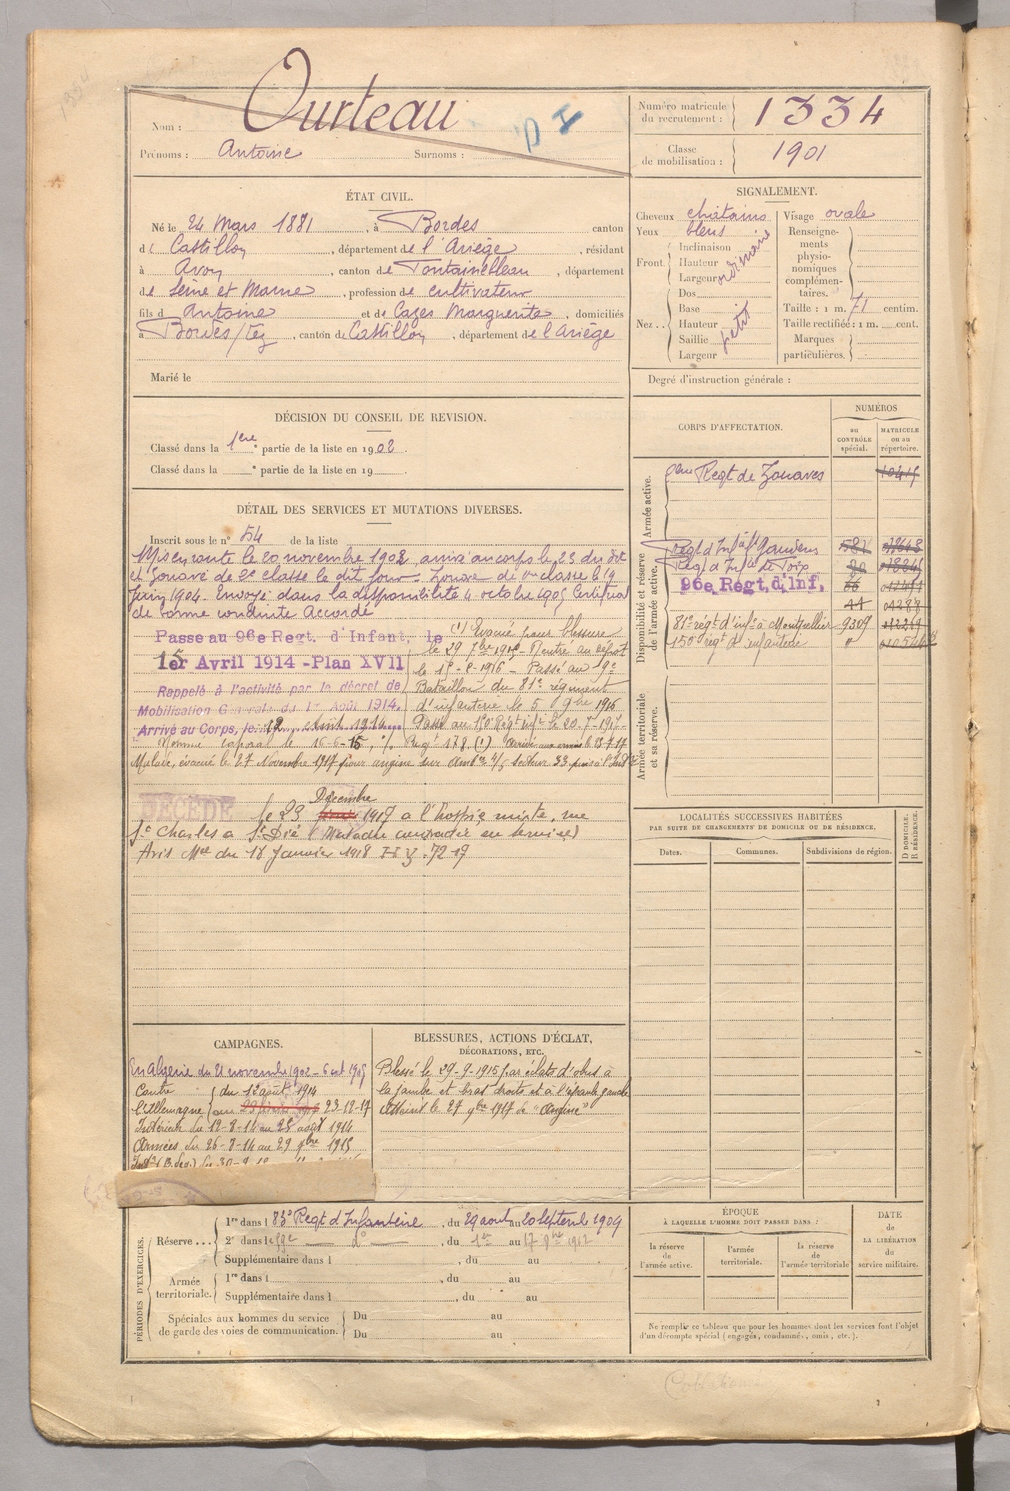 Nom : Ourteau
Prénoms : Antoine Surnoms :
Numéro matricule du recrutement : 1334
Classe de mobilisation : 1901
ÉTAT CIVIL.
Né le 24 Mars 1881, à Bordes canton
de Castillon, département de l'Ariège, résidant
à Avon, canton de Fontainebleau, département
de Seine et Marne, profession de cultivateur
fils d Antoine et de Cazes Marguerite, domiciliés
à Bordes/Lez, canton de Castillon, département de l'Ariège
Marié le
SIGNALEMENT.
Cheveux châtains
Yeux bleus
Front : Inclinaison Hauteur Largeur ordinaire
Nez : Dos Base Hauteur Saillie Largeur petit
Visage ovale
Renseignements physionomiques complémentaires.
Taille : 1 m. 71 centim.
Taille rectifiée : 1 m. cent.
Marques particulières.
Degré d'instruction générale :
DÉCISION DU CONSEIL DE REVISION.
Classé dans la 1ère partie de la liste en 1902.
Classé dans la e partie de la liste en 19
CORPS D'AFFECTATION.
NUMÉROS
au CONTRÔLE spécial.
MATRICULE ou au répertoire.
Armée active.
Regt de Zouaves
Disponibilité et réserve de l'armée active.
Regt d'Infie
Regt d'Infie de Foix
96e Regt. d'Inf.
81e régt d'infie à Montpellier 9309
150e régt d'infanterie
Armée territoriale et sa réserve.
DÉTAIL DES SERVICES ET MUTATIONS DIVERSES.
Inscrit sous le n° 54 de la liste
Mis en route le 20 novembre 1902, arrivé au corps le 23 du dit
et Zouave de 2e classe le dit jour. Zouave de 1re classe le 9
juin 1904. Envoyé dans la disponibilité 4 octobre 1905 Certificat
de bonne conduite Accordé
Passe au 96e Regt. d'Infant. le
15 Avril 1914 - Plan XVII
Rappelé à l'activité par le décret de
Mobilisation Générale du 1er Août 1914.
Arrivé au Corps, le 12 Août 1914
(1) Evacué pour blessure
le 29 7bre 1915 - Rentré au dépôt
Passé au
Bataillon du 81e régiment
d'infanterie le 5 9bre 1916
Passé au 150 Régt infie le 20-7-1917
Nommé caporal le 16-6-15
Malade, évacué le 27 Novembre 1917 pour angine sur Amb
DÉCÉDÉ le 23 Décembre 1917 à l'hospice mixte, rue
St Charles à St Dié (Maladie contractée en service)
Avis Mel du 18 Janvier 1918
CAMPAGNES.
En Algérie du 21 novembre 1902 - 6 oct 1905
Contre l'Allemagne du 12 août 1914 au 23-12-17
Intérieur du 12-8-14 au 25 août 1914
Armées du 26-8-14 au 29 9bre 1915
BLESSURES, ACTIONS D'ÉCLAT,
DÉCORATIONS, ETC.
Blessé le 29-9-1915 par éclats d'obus à
la jambe et bras droits et à l'épaule gauche
Atteint le 27 9bre 1917 de "Angine"
LOCALITÉS SUCCESSIVES HABITÉES
PAR SUITE DE CHANGEMENTS DE DOMICILE OU DE RÉSIDENCE.
Dates. Communes. Subdivisions de région. D DOMICILE. R RÉSIDENCE.
PÉRIODES D'EXERCICES.
Réserve ... 1re dans l 83e Regt d'Infanterie, du 29 août au 20 Septembre 1909
2e dans le 96e do, du 1er au 17 9bre 1912
Supplémentaire dans l , du au
Armée territoriale. 1re dans l , du au
Supplémentaire dans l , du au
Spéciales aux hommes du service de garde des voies de communication. Du au
Du au
ÉPOQUE
À LAQUELLE L'HOMME DOIT PASSER DANS :
la réserve de l'armée active.
l'armée territoriale.
la réserve de l'armée territoriale
DATE de LA LIBÉRATION du service militaire.
Ne remplir ce tableau que pour les hommes dont les services font l'objet
d'un décompte spécial (engagés, condamnés, omis, etc.).